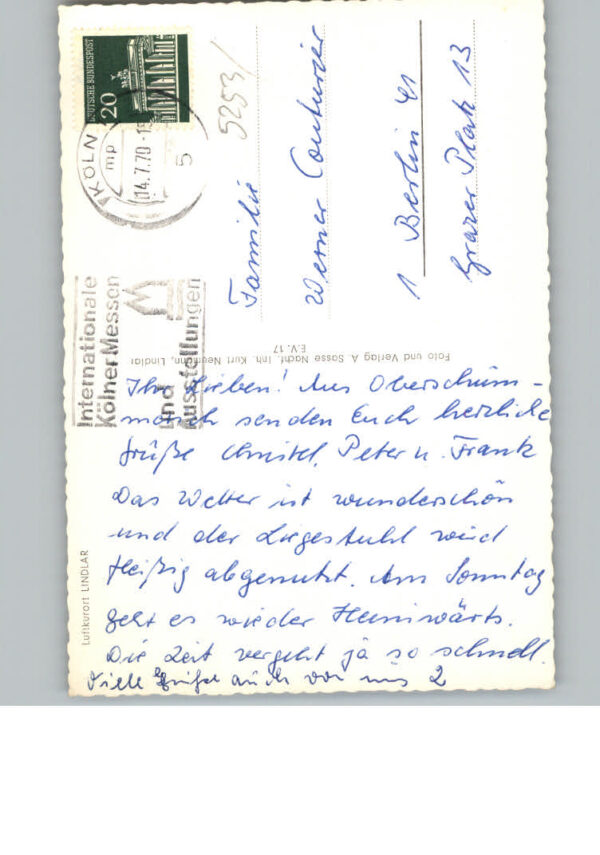 DEUTSCHE BUNDESPOST
20
KÖLN
mp
14.7.70-
5
5253/
Familie
Werner Couturier
1 Berlin 41
Grazer Platz 13
Internationale
Kölner Messen
und
Ausstellungen
Foto und Verlag A. Sasse Nachf. Inh. Kurt Neumann, Lindlar
E.V. 17
Luftkurort LINDLAR
Ihr Lieben! Aus Oberschüm-
merich senden Euch herzliche
Grüße Christel, Peter u. Frank
Das Wetter ist wunderschön
und der Liegestuhl wird
fleißig abgenutzt. Am Sonntag
geht es wieder Heimwärts.
Die Zeit vergeht ja so schnell.
Viele Grüße auch von uns 2